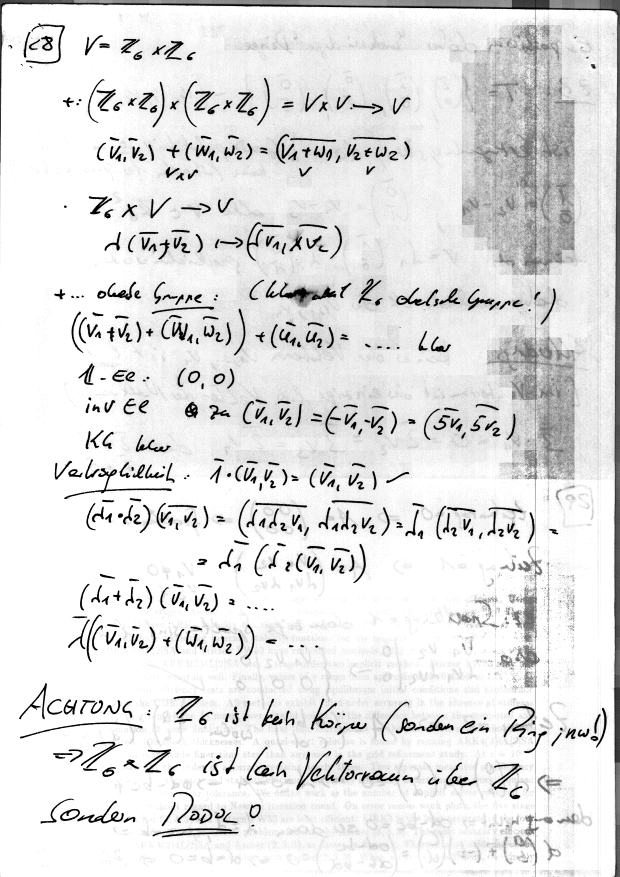 28 V = ℤ₆ × ℤ₆
+: (ℤ₆ × ℤ₆) × (ℤ₆ × ℤ₆) = V × V → V
(v̅₁, v̅₂) + (w̅₁, w̅₂) = (v̅₁̅+̅w̅₁̅, v̅₂̅+̅w̅₂̅)
V×V V V
· ℤ₆ × V → V
λ (v̅₁+v̅₂) ↦ (λ̅v̅₁̅, λ̅v̅₂̅)
+ ... Gruppe: ( hat ℤ₆ Gruppe!)
((v̅₁+v̅₂) + (w̅₁, w̅₂)) + (u̅₁, u̅₂) = .... klar
1-El: (0, 0)
inv El zu (v̅₁, v̅₂) = (-v̅₁, -v̅₂) = (5̅v̅₁̅, 5̅v̅₂̅)
KG klar
Verträglichkeit: 1̅·(v̅₁, v̅₂) = (v̅₁, v̅₂) ✓
(λ̅₁·λ̅₂)(v̅₁, v̅₂) = (λ̅₁̅λ̅₂̅v̅₁̅, λ̅₁̅λ̅₂̅v̅₂̅) = λ̅₁ (λ̅₂̅v̅₁̅, λ̅₂̅v̅₂̅) =
= λ̅₁ (λ̅₂(v̅₁, v̅₂))
(λ̅₁+λ̅₂)(v̅₁, v̅₂) = ....
λ̅((v̅₁, v̅₂) + (w̅₁, w̅₂)) = ...
ACHTUNG: ℤ₆ ist kein Körper (sondern ein Ring, !)
⇒ ℤ₆ × ℤ₆ ist kein Vektorraum über ℤ₆
sondern MODUL!